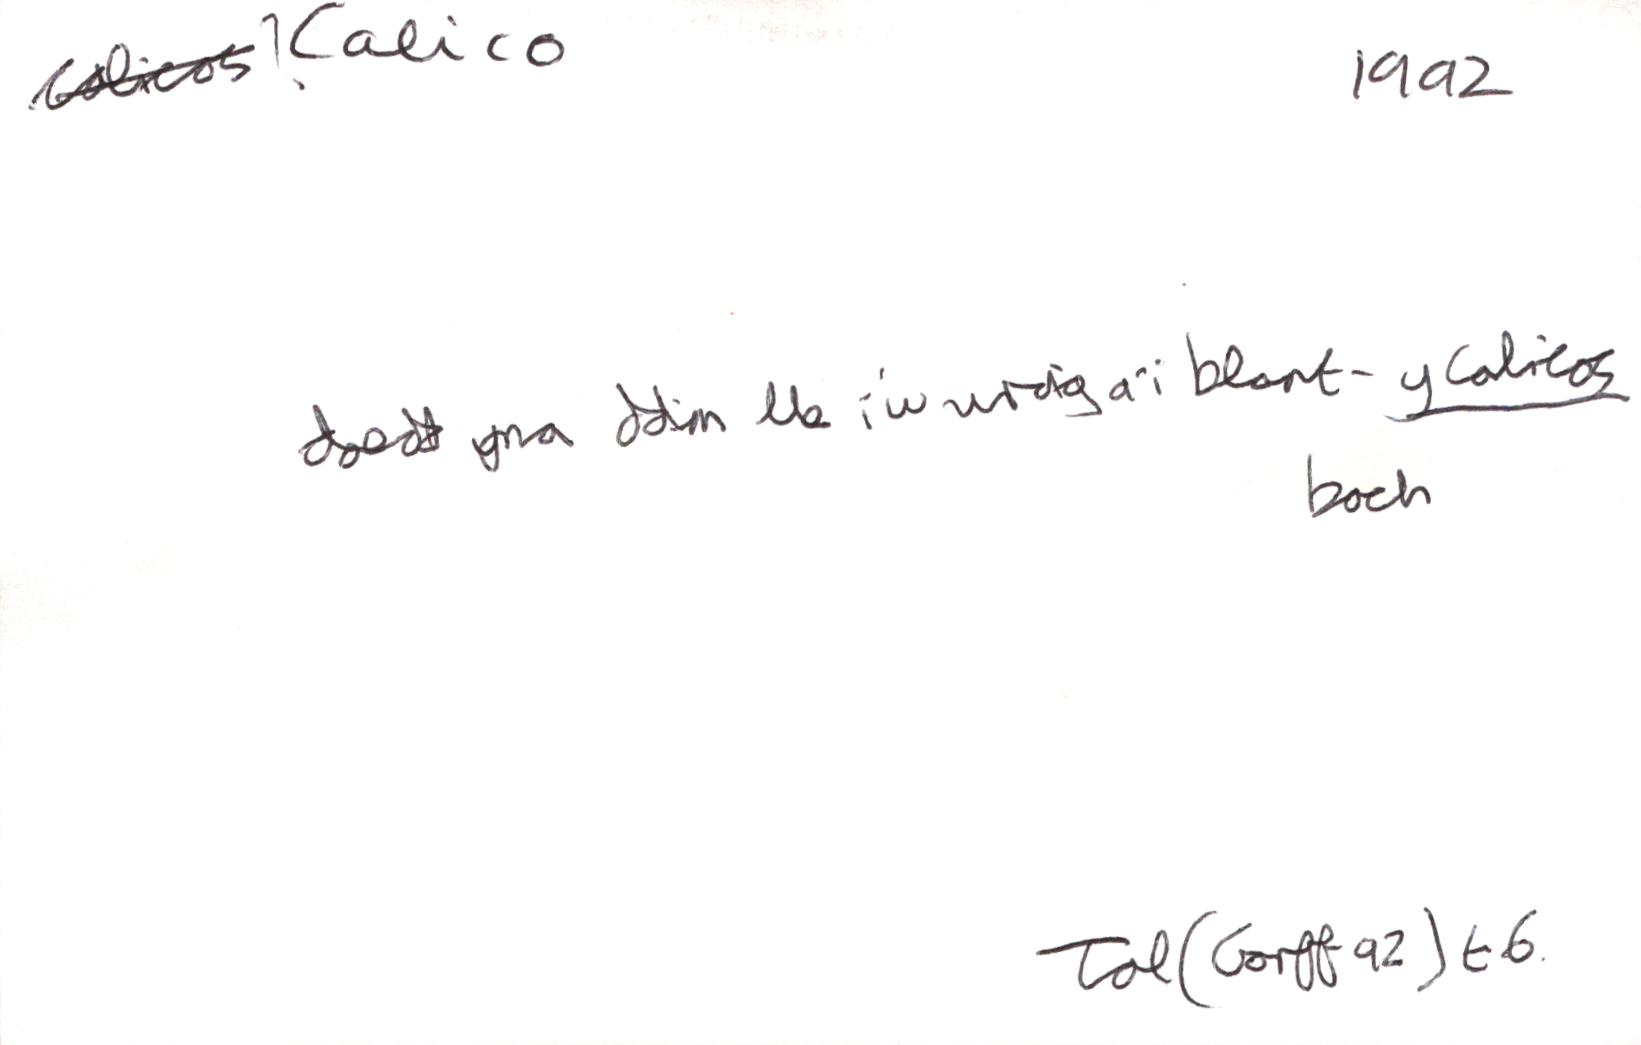 calicos ? Calico
1992
doedd yna ddim lle i'w wraig a'i blant - y calicos
boch
Tal (Gorff 92) t 6.